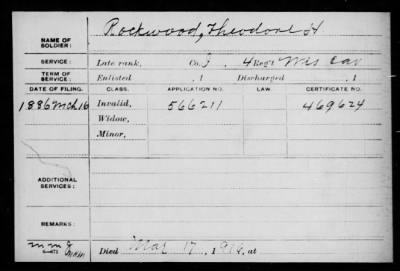 NAME OF SOLDIER: Rockwood, Theodore H
SERVICE: Late rank, Co. I, 4 Reg't Wis Cav
TERM OF SERVICE: Enlisted , 1 Discharged , 1
DATE OF FILING. CLASS. APPLICATION NO. LAW. CERTIFICATE NO.
1886 Mch 16 Invalid, 566211 469624
Widow,
Minor,
ADDITIONAL SERVICES:
REMARKS:
Died Mar 17, 1916, at